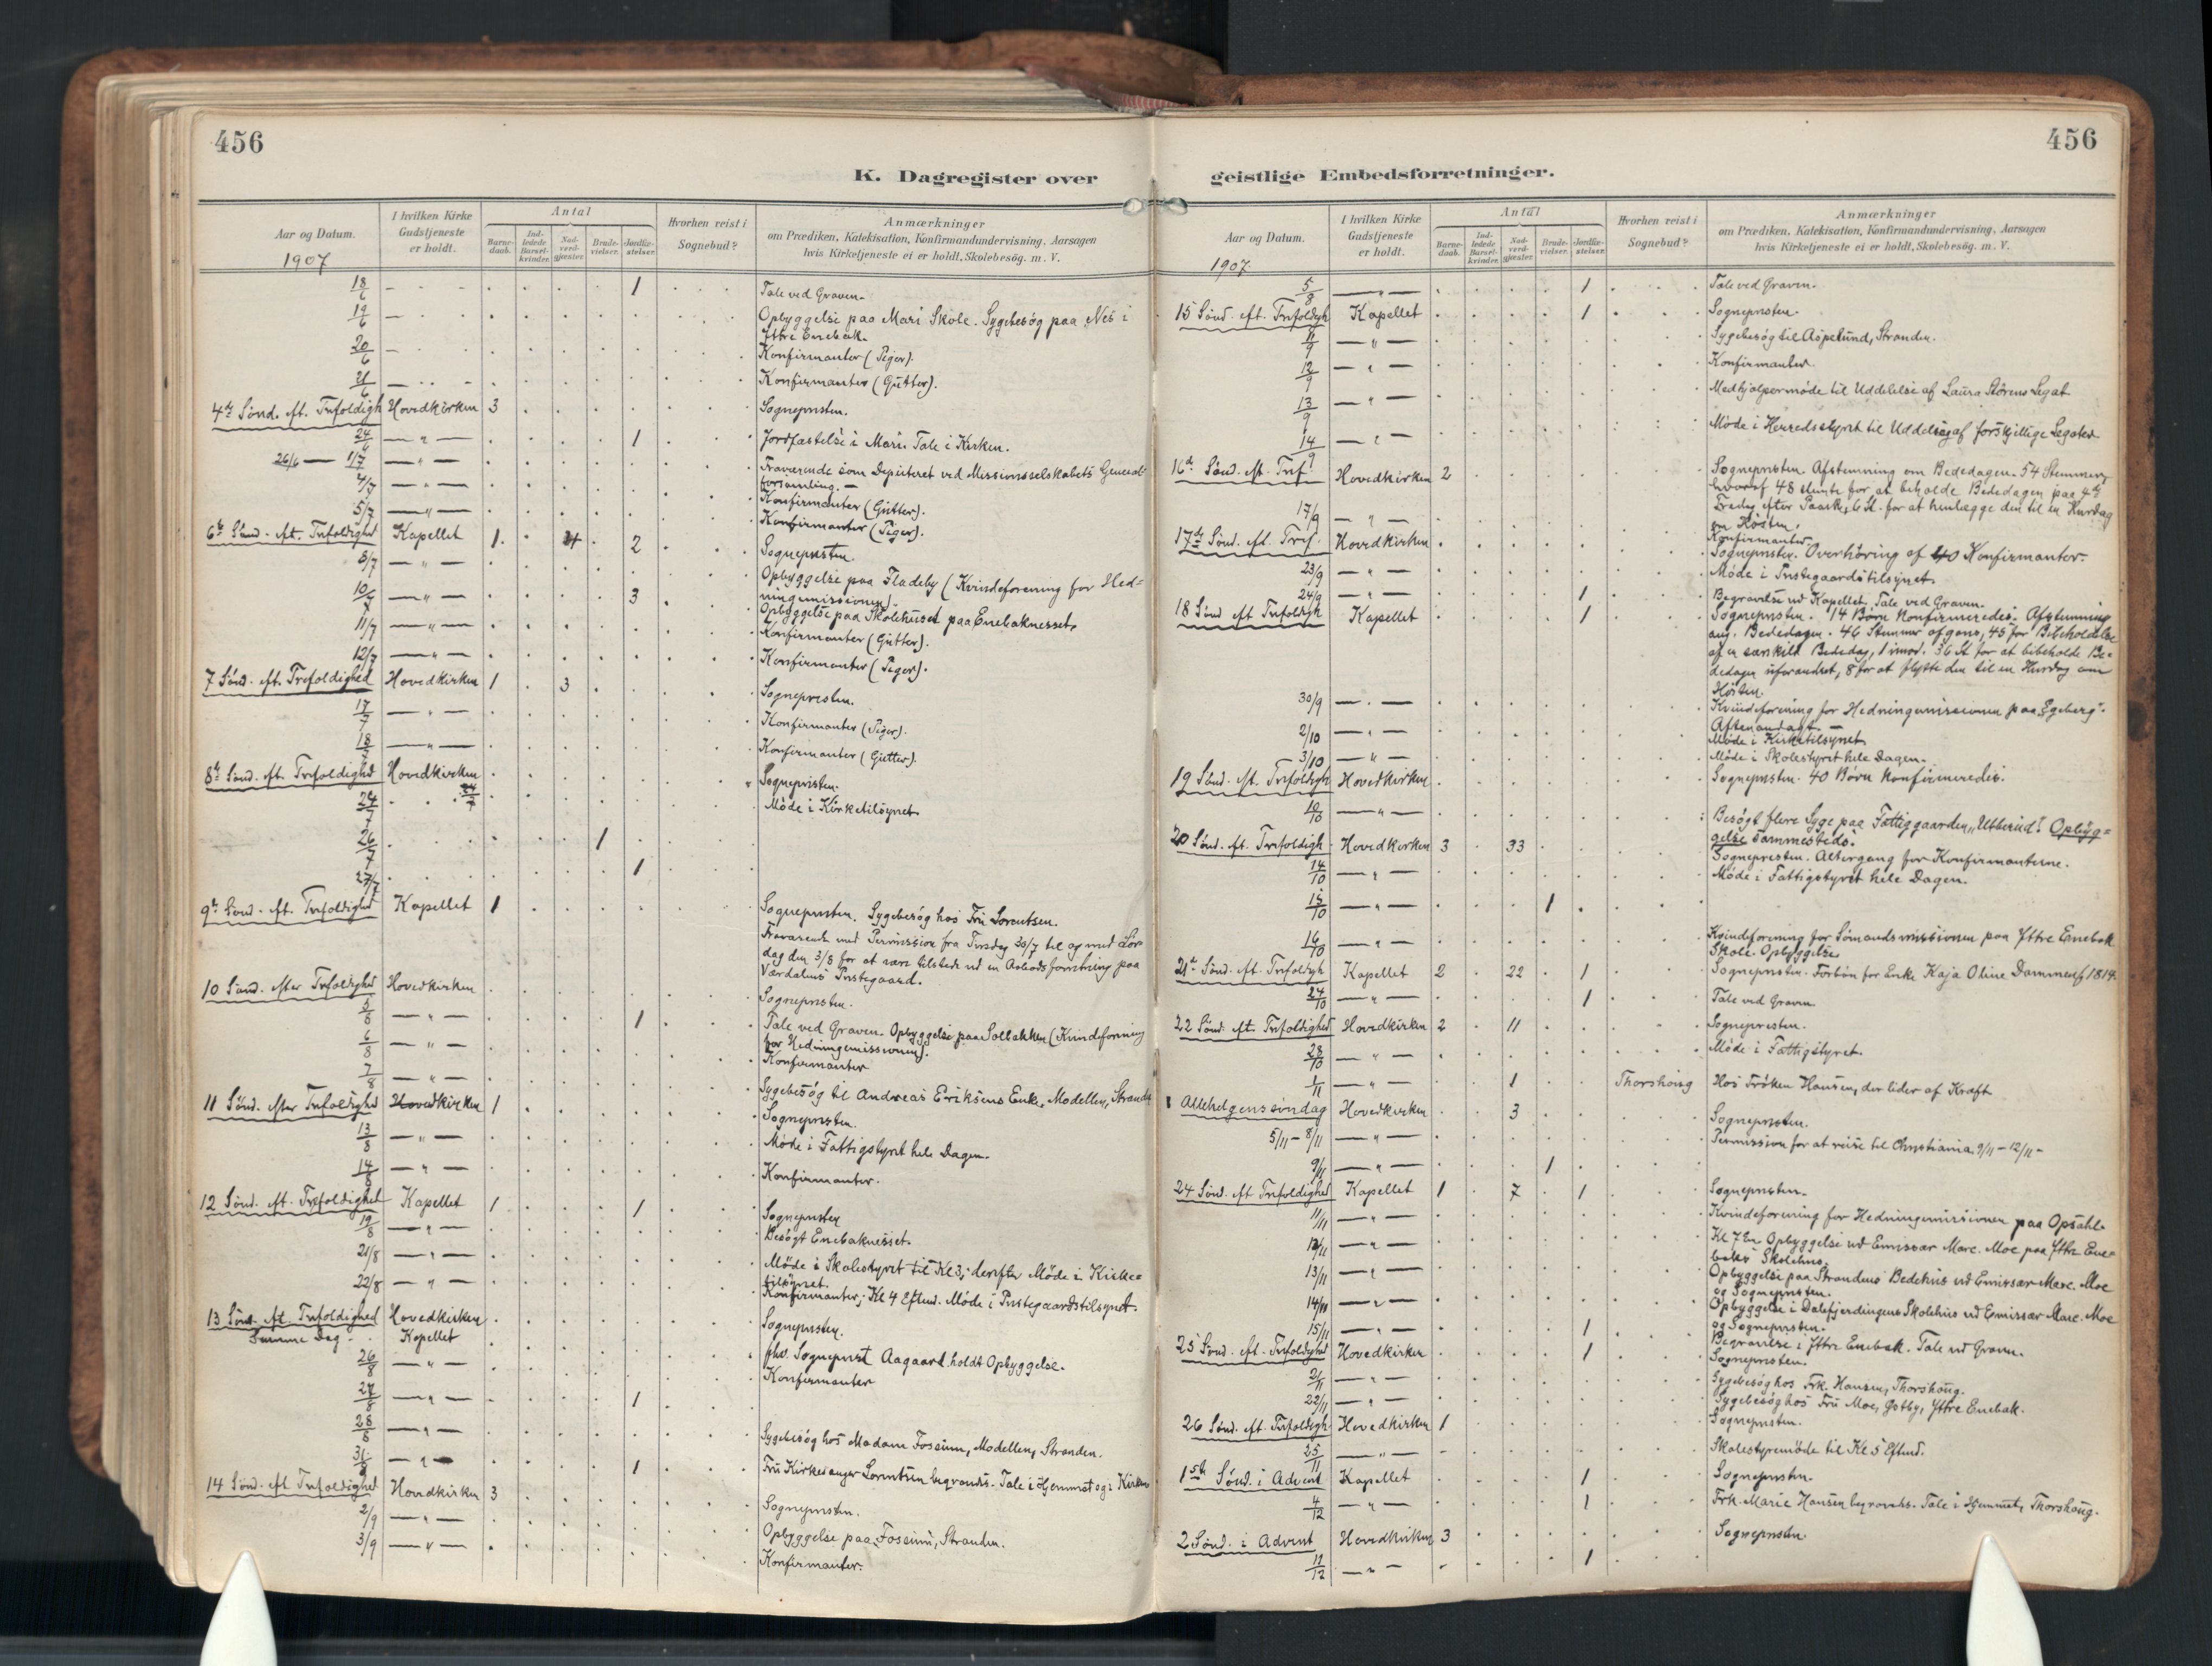 456
K. Dagregister over
Aar og Datum.
1907
I hvilken Kirke Gudstjeneste er holdt.
Antal
Barne-daab.
Ind-ledede Barsel-kvinder.
Nad-verd-gjæster.
Brude-vielser.
Jordfæ-stelser.
Hvorhen reist i Sognebud?
Anmærkninger
om Prædiken, Katekisation, Konfirmandundervisning, Aarsagen
hvis Kirketjeneste ei er holdt, Skolebesög. m. V.
18/6 1 Tale ved Graven.
19/6 Opbyggelse paa Mari Skole. Sygebesög paa Nes i
Ytre Enebak.
20/6 Konfirmanter (Piger).
21/6 Konfirmanter (Gutter).
4de Sönd. eft. Trefoldigh Hovedkirken 3 Sognepresten.
24/6 — " — 1 Jordfæstelse i Mari. Tale i Kirken.
26/6 — 1/7 — " — Fraværende som Deputeret ved Missionsselskabets General-
forsamling. —
4/7 — " — Konfirmanter (Gutter).
5/7 — " — Konfirmanter (Piger).
6te Sönd. eft. Trefoldighed Kapellet 1. 4 2 Sognepresten.
8/7 — " — Opbyggelse paa Fladeby (Kvindeforening for Hed=
ningemissionen).
10/7 — " — 3 Opbyggelse paa Skolehuset paa Enebaknesset.
11/7 — " — Konfirmanter (Gutter).
12/7 — " — Konfirmanter (Piger).
7 Sönd. eft. Trefoldighed Hovedkirken 1 3 Sognepresten.
17/7 — " — Konfirmanter (Piger).
18/7 — " — Konfirmanter (Gutter).
8de Sönd. eft. Trefoldighed Hovedkirken Sognepresten.
24/7 24/7 Möde i Kirketilsynet.
26/7 1
27/7 1
9de Sönd. eft. Trefoldighed Kapellet 1 Sognepresten. Sygebesög hos Fru Lorentsen.
Fraværende med Permission fra Tirsdag 30/7 til og med Lör-
dag den 3/8 for at være tilstede ved en Aabodsforretning paa
Værdalens Prestegaard.
10 Sönd. efter Trefoldighed Hovedkirken Sognepresten.
5/8 — " — 1 Tale ved Graven. Opbyggelse paa Solbakken (Kvindeforening
for Hedningemissionen).
6/8 — " — Konfirmanter
7/8 — " — Sygebesög til Andreas Eriksens Enke, Modellen, Stranden
11 Sönd. efter Trefoldighed Hovedkirken 1 Sognepresten.
13/8 — " — Möde i Fattigstyret hele Dagen.
14/8 — " — Konfirmanter.
12 Sönd. eft. Trefoldighed Kapellet 1 1 Sognepresten
19/8 — " — Besögt Enebaknesset.
21/8 — " — Möde i Skolestyret til Kl 3; derefter Möde i Kirke=
tilsynet.
22/8 — " — Konfirmanter; Kl 4 Eftmd. Möde i Prestegaardstilsynet.
13 Sönd. eft. Trefoldighed Hovedkirken Sognepresten.
Samme Dag Kapellet fhv. Sogneprest Aagaard holdt Opbyggelse.
26/8 — " — Konfirmanter
27/8 — " — 1
28/8 — " — Sygebesög hos Madam Fossum, Modellen, Stranden.
31/8 — " — 1 Fru Kirkesanger Lorentsen begravedes. Tale i Hjemmet og i Kirken
14 Sönd. eft. Trefoldighed Hovedkirken 3 Sognepresten.
2/9 — " — Opbyggelse paa Fossum, Stranden.
3/9 — " — Konfirmanter.
456
geistlige Embedsforretninger.
Aar og Datum.
1907.
I hvilken Kirke Gudstjeneste er holdt.
Antal
Barne-daab.
Ind-ledede Barsel-kvinder.
Nad-verd-gjæster.
Brude-vielser.
Jordfæ-stelser.
Hvorhen reist i Sognebud?
Anmærkninger
om Prædiken, Katekisation, Konfirmandundervisning, Aarsagen
hvis Kirketjeneste ei er holdt, Skolebesög. m. V.
5/8 — " — 1 Tale ved Graven.
15 Sönd. eft. Trefoldigh Kapellet 1 Sognepresten.
11/9 — " — Sygebesög til Aspelund, Stranden.
12/9 — " — Konfirmanter.
13/9 — " — Medhjælpermöde til Uddelelse af Laura Störens Legat
14/9 — " — Möde i Herredsstyret til Uddeling af forskjellige Legater
16de Sönd. eft. Tref. Hovedkirken 2 Sognepresten. Afstemning om Bededagen. 54 Stemmer,
hvoraf 48 stemte for at beholde Bededagen paa 4de
Fredag efter Paaske, 6 St. for at henlægge den til en Hverdag
om Hösten.
17/9 — " — Konfirmanter
17de Sönd. eft. Tref. Hovedkirken Sognepresten. Overhöring af 40 Konfirmanter.
23/9 — " — Möde i Prestegaardstilsynet.
24/9 — " — 1 Begravelse ved Kapellet. Tale ved Graven.
18 Sönd. eft. Trefoldigh Kapellet 1 Sognepresten. 14 Börn Konfirmeredes. Afstemning
ang. Bededagen. 46 Stemmer afgaves, 45 for Bibeholdelse
af en særskilt Bededag, 1 imod. 36 St for at bibeholde Be=
dedagen uforandret, 8 for at flytte den til en Hverdag om
Hösten.
30/9 — " — Kvindeforening for Hedningemissionen paa "Egeberg".
Aftenandagt. —
2/10 — " — Möde i Kirketilsynet.
3/10 — " — Möde i Skolestyret hele Dagen.
19 Sönd. eft. Trefoldigh Hovedkirken Sognepresten. 40 Börn Konfirmeredes.
10/10 — " — Besögt flere Syge paa Fattiggaarden "Utberud". Opbyg=
gelse sammesteds.
20 Sönd. eft. Trefoldigh. Hovedkirken 3 33 Sognepresten. Altergang for Konfirmanterne.
14/10 — " — Möde i Fattigstyret hele Dagen.
15/10 — " — 1
16/10 — " — Kvindeforening for Sömandsmissionen paa Ytre Enebak
Skole. Opbyggelse
21de Sönd. eft. Trefoldigh Kapellet 2 22 1 Sognepresten. Forbön for Enke Kaja Oline Dammen f 1814.
24/10 — " — 1 Tale ved Graven
22 Sönd. eft. Trefoldighed Hovedkirken 2 11 Sognepresten.
28/10 — " — Möde i Fattigstyret.
1/11 — " — 1 Thorshaug Hos Fröken Hansen, der lider af Kræft
Allehelgenssöndag Hovedkirken 3 Sognepresten.
5/11 – 8/11 — " — Permission for at reise til Christiania 9/11 – 12/11 –
9/11 — " — 1
24 Sönd. eft Trefoldighed Kapellet 1 7 1 Sognepresten.
11/11 — " — Kvindeforening for Hedningemissionen paa Opsahl.
12/11 — " — Kl 7 Em Opbyggelse ved Emissær Marc. Moe paa Ytre Ene=
baks Skolehus.
13/11 — " — Opbyggelse paa Strandens Bedehus ved Emissær Marc. Moe
og Sognepresten.
14/11 — " — Opbyggelse i Dalefjerdingens Skolehus ved Emissær Marc. Moe
og Sognepresten.
15/11 — " — 1 Begravelse i Ytre Enebak. Tale ved Graven.
25 Sönd. eft. Trefoldighed Hovedkirken 1 Sognepresten.
21/11 — " — Sygebesög hos Frk. Hansen, Thorshaug.
22/11 — " — Sygebesög hos Fru Moe, Gotby, Ytre Enebak.
26 Sönd. eft. Trefoldigh. Hovedkirken 1 Sognepresten.
25/11 — " — Skolestyremöde til Kl 5 Eftmd.
1ste Sönd. i Advent Kapellet 1 Sognepresten.
4/12 — " — 1 Frk. Marie Hansen begravedes. Tale i Hjemmet, Thorshaug.
2 Sönd. i Advent Hovedkirken 3 Sognepresten.
11/12 — " — 1